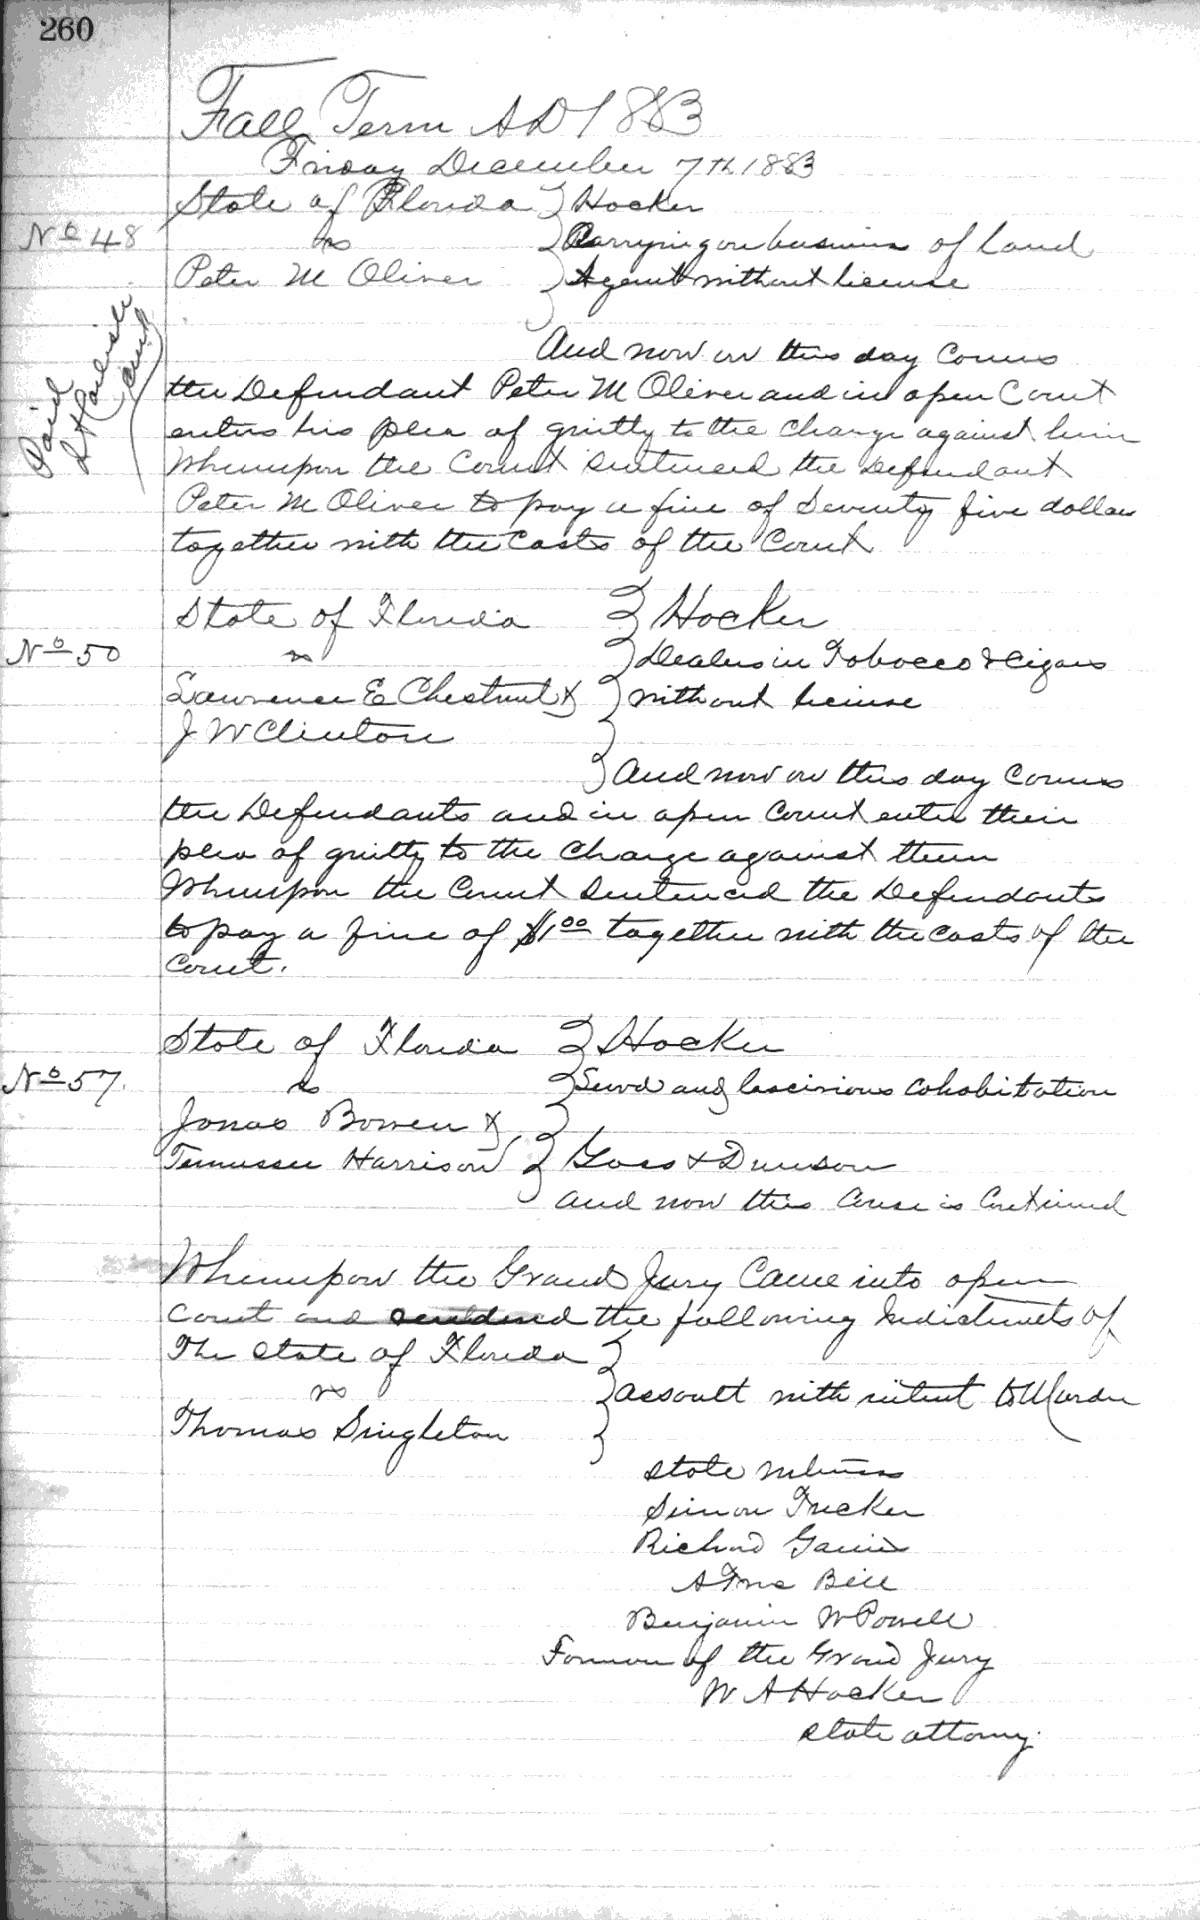 260
Fall Term AD 1883
Friday December 7th 1883
State of Florida } Hocker
No 48 vs } Carrying on business of Land
Peter M Oliver } Agent without license
Paid
And now on this day Comes
the Defendant Peter M Oliver and in open Court
enters his plea of guilty to the charge against him
Whereupon the Court Sentenced the Defendant
Peter M Oliver to pay a fine of Seventy five dollars
together with the Costs of the Court
State of Florida } Hocker
No 50 vs } Dealers in Tobacco & Cigars
Lawrence E Chestnut & } without license
J W Clinton }
} And now on this day Comes
the Defendants and in open Court enter their
plea of guilty to the charge against them
Whereupon the Court Sentenced the Defendants
to pay a fine of $1.00 together with the costs of the
Court.
State of Florida } Hocker
No 57. vs } Lewd and lascivious Cohabitation
Jonas Bowen & }
Tennessee Harrison } Goss & Dunson
and now this Cause is Continued
Whereupon the Grand Jury Came into open
Court and rendered the following Indictments of
The State of Florida }
vs } Assault with intent to Murder
Thomas Singleton }
State witness
Simon Tucker
Richard
A True Bill
Benjamin W Powell
Foreman of the Grand Jury
W A Hocker
State attorny.